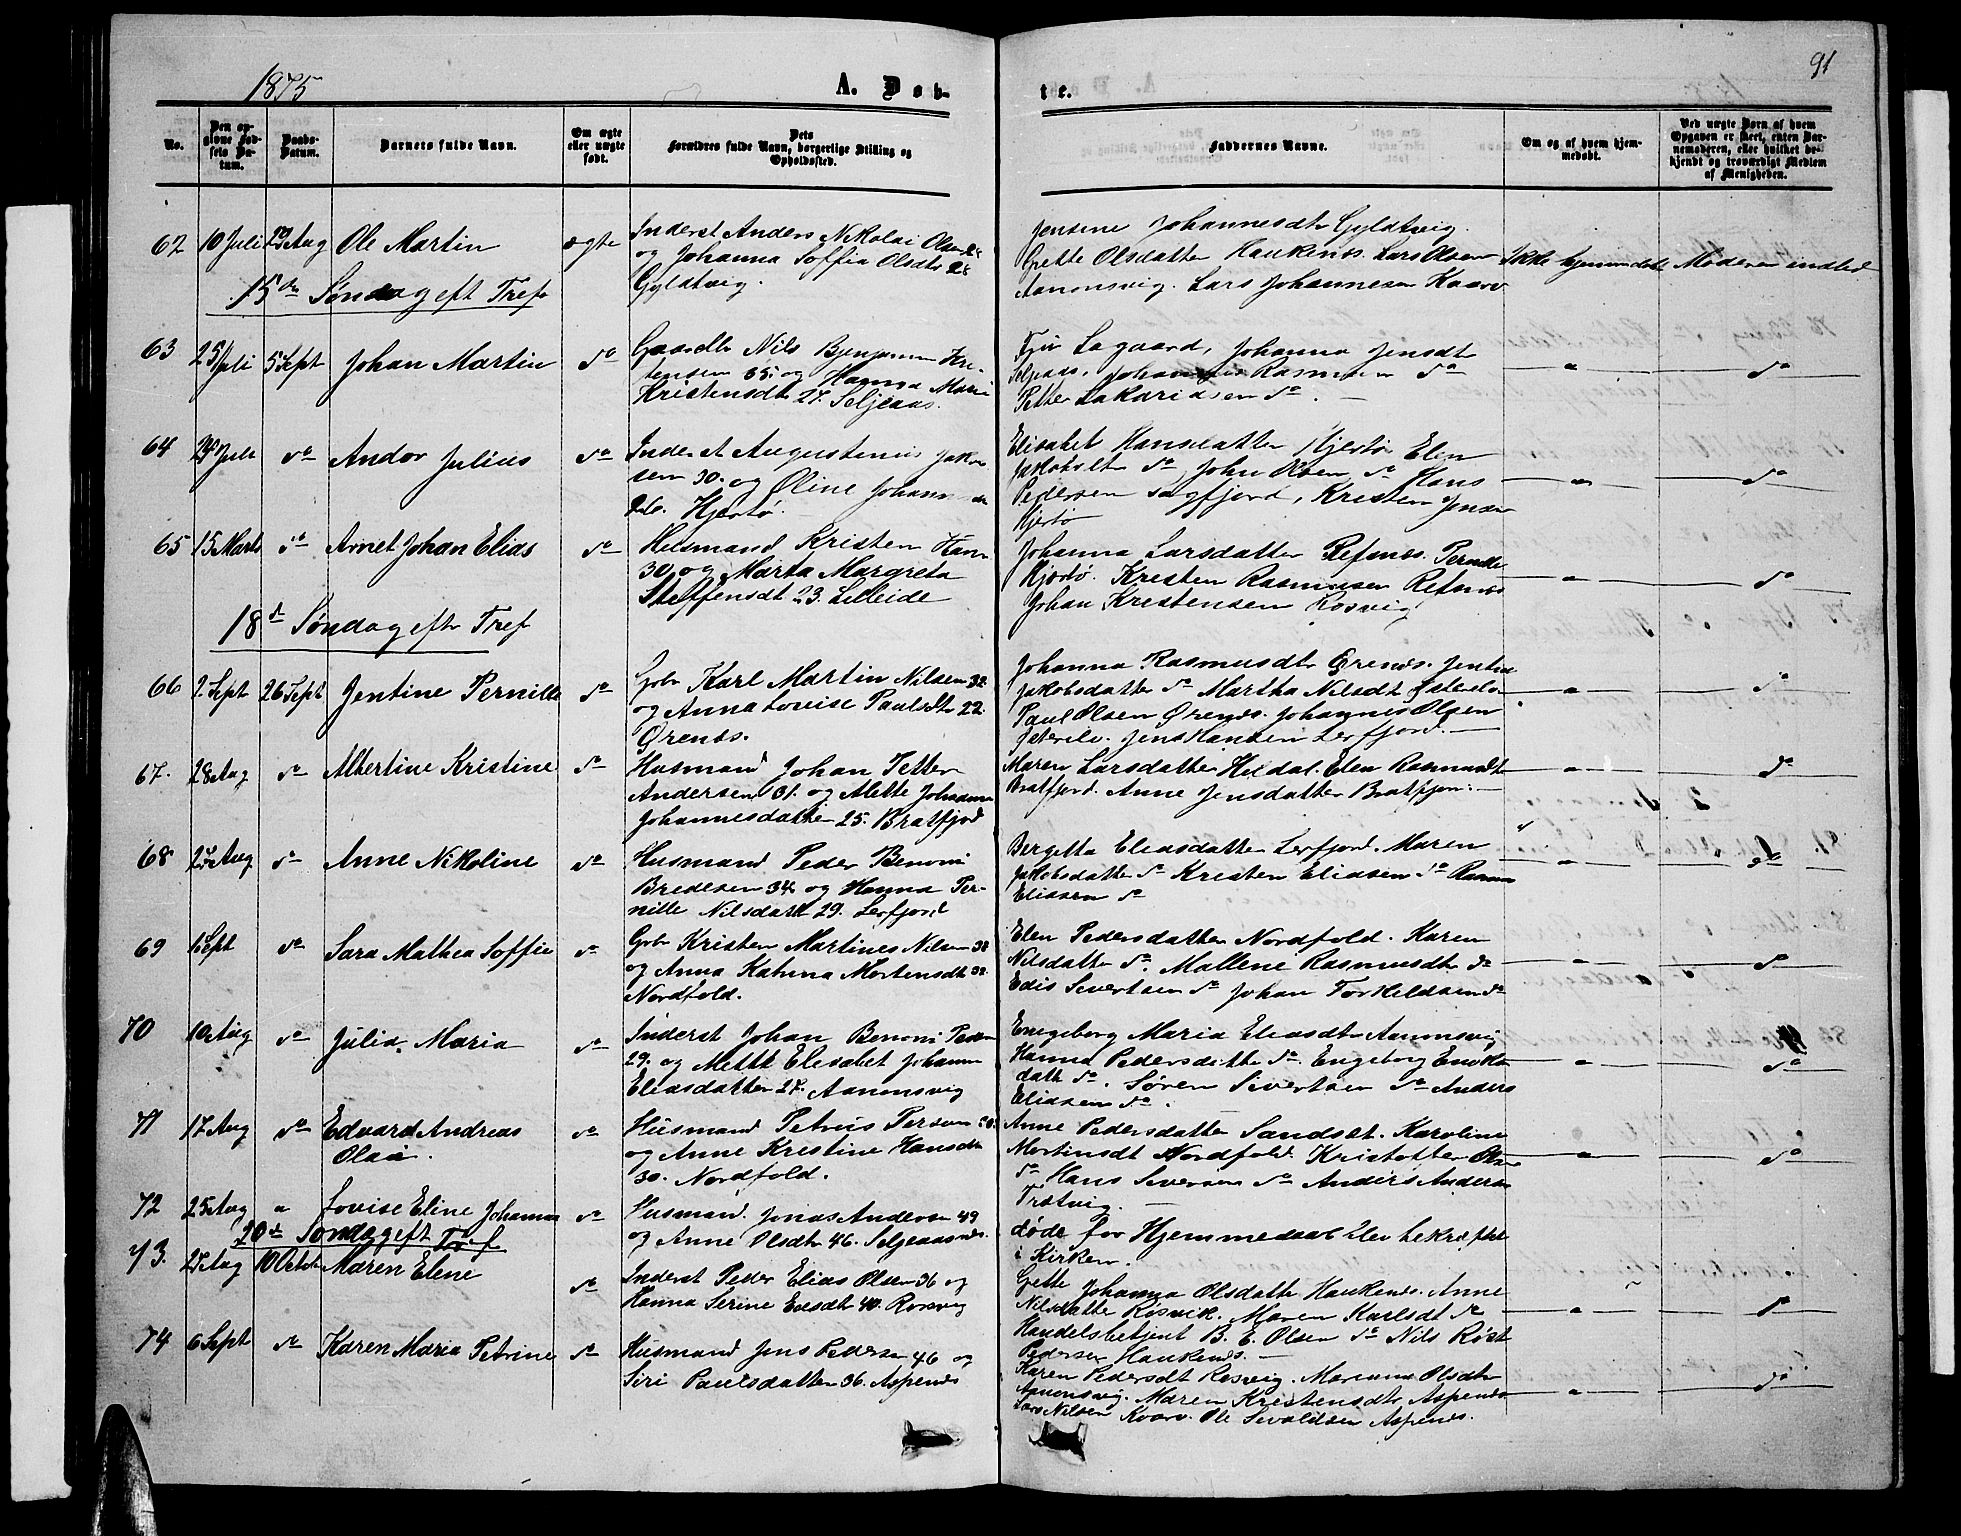 1875
A. Døb-
te.
91
No.
Den opgivne Fødsels Datum.
Daabs-Datum.
Barnets fulde Navn.
Om ægte eller uægte født.
Dets Forældres fulde Navn, borgerlige Stilling og Opholdssted.
Faddernes Navne.
Om og af hvem hjemmedøbt.
Ved uægte Børn af hvem Opgaven er skeet, enten Barnemoderen, eller hvilket bekjendt og troværdigt Medlem af Menigheden.
62 10 Juli Aug Ole Martin ægte
Inderst Anders Nikolai Olsen
og Johanna Soffia Olsdtr
Gyldtvig.
Jensine Johannesdtr Gyldtvig.
Grette Olsdatter Haukenes. Lars Olsen
Aanonsvig. Lars Johannesen Kaarv
Ikke hjemmedøbt Moderen indled
15de Søndag eft Tref
63 25 Juli 5 Sept Johan Martin do
Gaardbr Nils Benjamin Kri-
stensen 35. og Hanna Marie
Kristensdtr 27. Seljeaas.
Lagaard, Johanna Jensdtr
Seljeaas, Rasmusen do
Petter Sakariasen do. — " — do
64 Juli do Andor Julius do
Inderst Augustinus Jakob
sen 30. og Oline Johann
26. Hjertø.
Elisabet Hansdatter Hjertø Elen
Jakobsdtr do John Olsen do Hans
Pedersen Sagfjord, Kristen Jensen
Hjertø — " — do
65 15 Marts do Arnet Johan Elias do
Husmand Kristen Hans
30. og Marta Margreta
Steffensdt 23. Lilleide
Johanna Larsdatter Refsnes. Pernille
Hjertø. Kristen Rasmusen Refsnes
Johan Kristensen Rosvig — " — do
18de Søndag eftr Tref
66 2 Sept 26 Sept Jentine Pernille do
Gbr Karl Martin Nilsen 32
og Anna Lovise Paulsdtr 22.
Ørenes.
Johanna Rasmusdtr Ørenes. Jentine
Jakobsdatter do Martha Nilsdt
Paul Olsen Ørenes. Johannes Olsen
Jens Hansen Lerfjord. — " — do
67. 28 Aug do Albertine Kristine do
Husmand Johan Petter
Andersen 31. og Mette Johanna
Johannesdatter 25. Bratfjord
Maren Larsdatter Heldal. Elen Rasmusdtr
Bratfjord. Anne Jensdatter Bratfjord. — " — do
68 25 Aug do Anne Nikoline do
Husmand Peder Benoni
Bredesen 34 og Hanna Per-
nille Nilsdatt 29. Lerfjord
Bergetta Eleasdatter Lerfjord. Maren
Jakobsdatter do Kristen Eliasen do Rasmus
Eliasen do — " — do
69 1 Sept do Sara Mathea Soffie do
Gbr Kristen Martines Nilsen 38
og Anna Katrina Mortensdt 32.
Nordfold.
Elen Pedersdatter Nordfold. Karen
Nilsdatter do. Mallene Rasmusdtr do
Edis Severtsen do Johan Torkeldsen do — " — do
70 10 Aug do Julia Maria do
Inderst Johan Benoni Peder
29. og Mette Elesabet Johanna
Eleasdatter 27. Aanonsvig
Engeborg Maria Eleasdtr Aanonsvig
Hanna Pedersdatter do. Engeborg
datter do. Søren Sivertsen do Anders
Eliasen do. — " — do
71 17 Aug do Edvard Andreas do
Olai.
Husmand Petrus Persen
og Anne Kristine Hansdtr
30. Nordfold.
Anne Pedersdatter Sandset. Karoline
Mortinsdt Nordfold. Kristoffer Olsen
do Hans Seversen do Anders Andersen
Trotvig. — " — do
72 25 Aug " Lovise Eline Johanna do
Husmand. Jonas Andersen 49
og Anne Olsdtr 46. Seljeaasnes.
døde før Hjemmedaab blev bekræftet
i Kirken.
20de Søndag eft Tref
73. 27 Aug 10 Octob Maren Elene do
Inderst Peder Elias Olsen 36 og
Hanna Serine 40. Rosvig
Grette Johanna Olsdatter Haukenes. Anne
Nilsdatter Røsvik. Maren Karlsdt do
Handelsbetjent B. E. Olsen do Nils Røst
Pedersen Haukenes. — " — do
74 6 Sept do Karen Maria Petrine do
Husmand Jens Pedersen 46 og
Siri Paulsdatter 36. Aspenes
Karen Pedersdt Rosvig. Mariana Olsdtr
Aanonsvig. Maren Kristensdtr Aspenes
Lars Nilsen Kvarv. Ole Sivaldsen Aspenes. — " — do